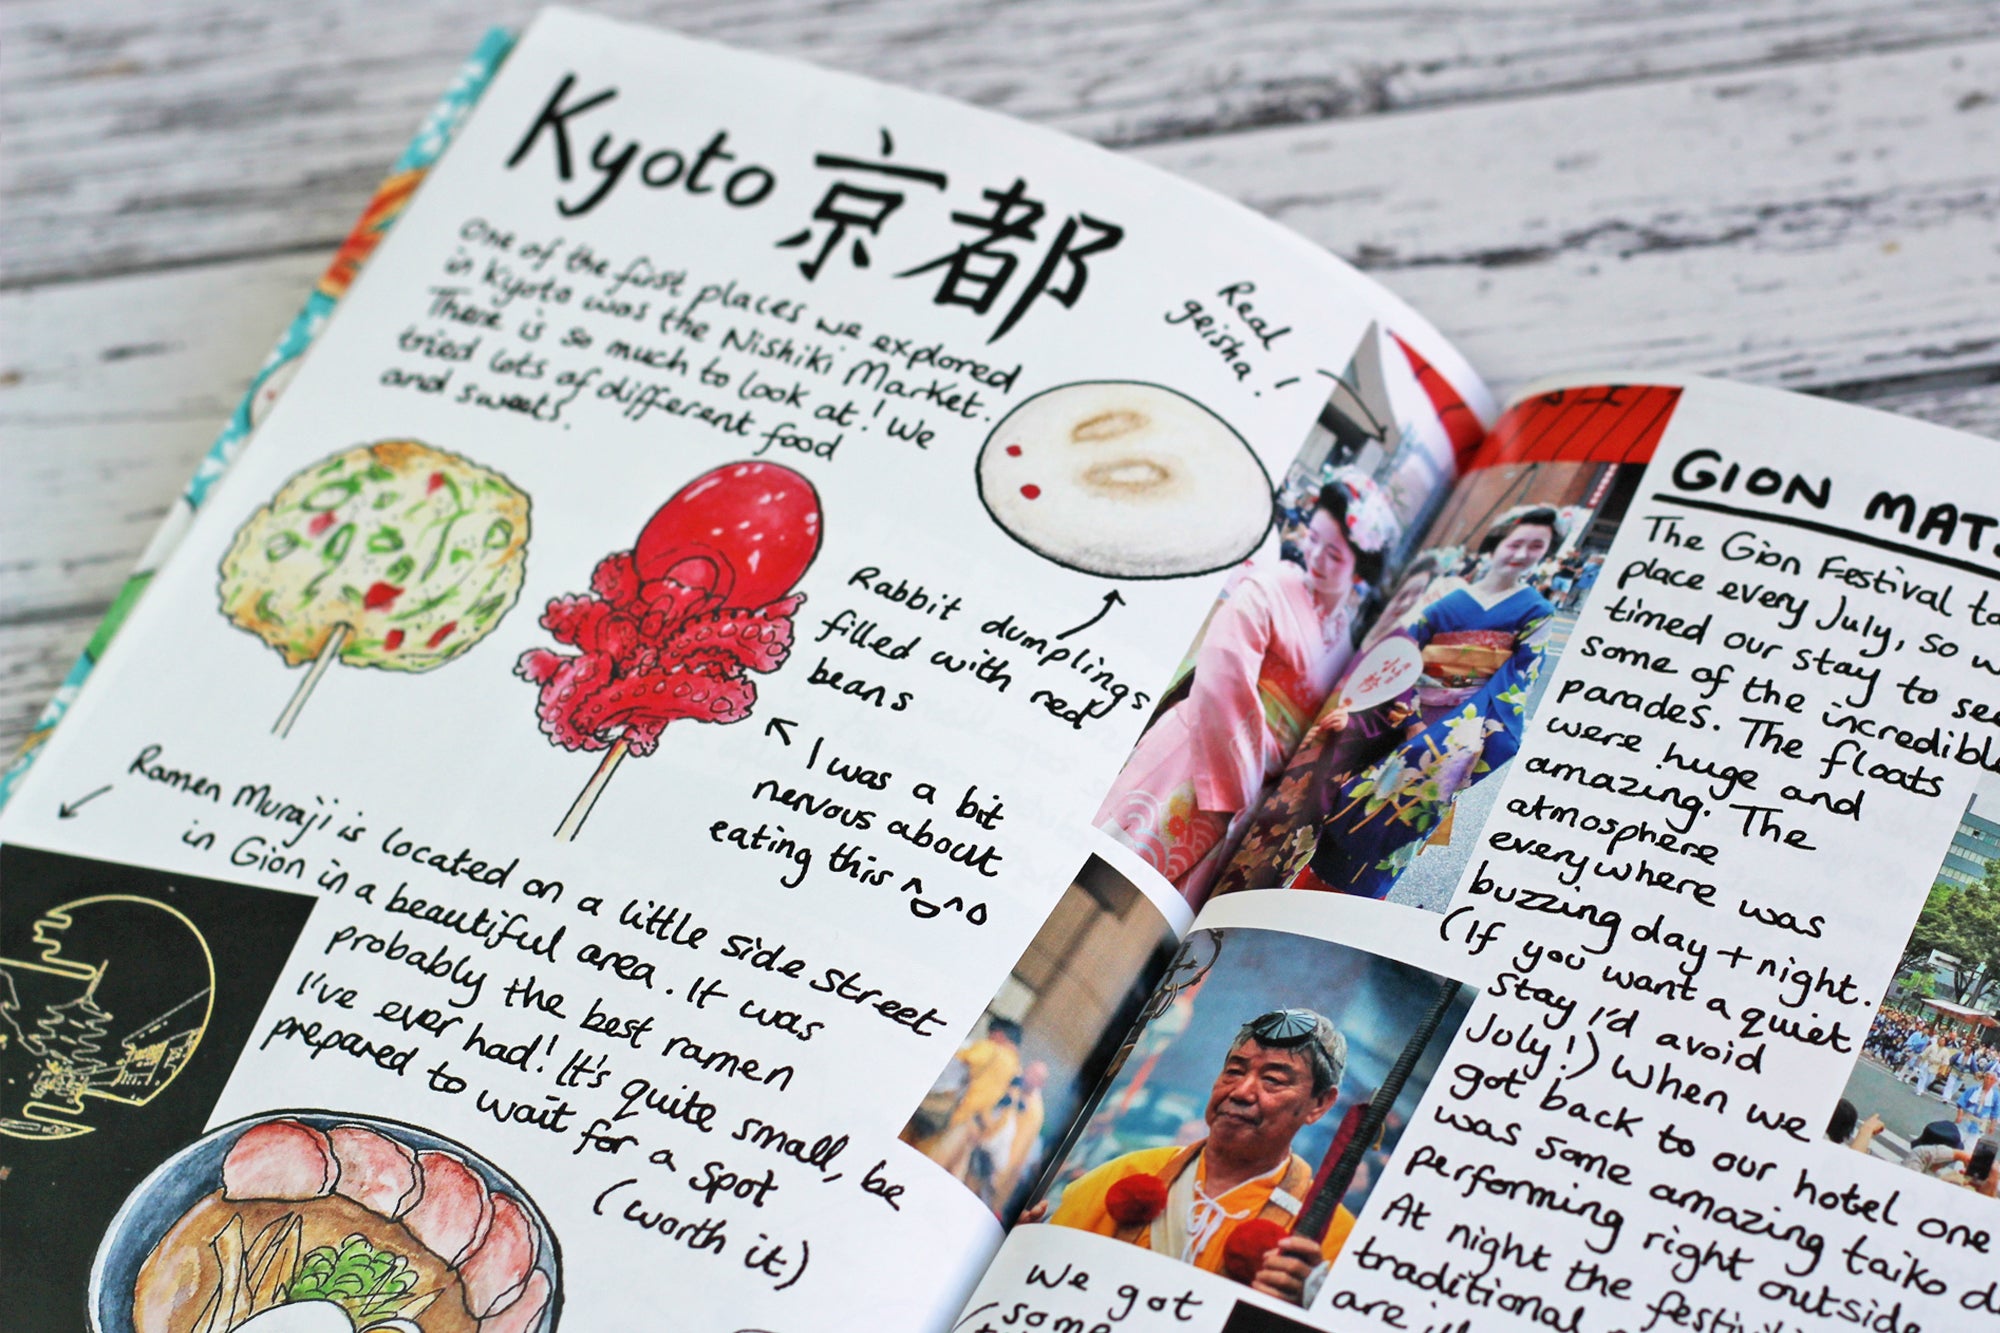 Kyoto 京都
One of the first places we explored
in Kyoto was the Nishiki Market.
There is so much to look at! We
tried lots of different food
and sweets.
Real
geisha!
Rabbit dumplings
filled with red
beans
I was a bit
nervous about
eating this
Ramen Muraji is located on a little side street
in Gion in a beautiful area. It was
probably the best ramen
I've ever had! It's quite small, be
prepared to wait for a spot
(worth it)
GION MAT
The Gion Festival
place every July, so
timed our stay to see
some of the incredible
parades. The floats
were huge and
amazing. The
atmosphere
everywhere was
buzzing day + night.
(If you want a quiet
stay I'd avoid
July!) When we
got back to our hotel one
was some amazing taiko
performing right outside
At night the
traditional
are
We got
(some